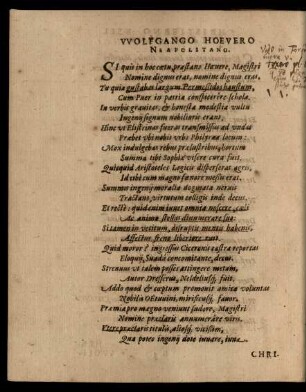 VVOLFGANGO HOEVERO
NEAPOLITANO.
SI quis in hoc cœtu, præstans Hovere, Magistri
Nomine dignus erat, nomine dignus eras.
Tu quia gustabas largum Permessidos haustum,
Cum Puer in patria constitêre schola.
In verbis gravitas, & honesta modestia vultu
Ingenij signum nobilioris erant.
Hinc ut Elysterinas fueras transmissus ad undas
Præbet ubi nobis urbs
Mox indulgebas rebus præclustribus, hortum
Summa tibi Sophiæ visere cura fuit.
Quicquid Aristoteles Logicis disperserat agris,
Id tibi cum magno fœnore messis erat.
Summus ingenij moralia dogmata nervis
Tractans, virtutum colligis inde decus.
Et rectè: quid enim juvat omnia noscere
Ac animo stellas dinumerare suo:
Si tamen in vetitum, disruptis mentis habenis,
Affectus freno liberiore ruit.
Quid moror? ingressus Ciceronis castra reportas
Eloquij, Suadâ concomitante, decus.
Strenuus ut talem posses attingere metam,
Autor Dresserus,
Addo quod & cœptum promovit amica voluntas
Nobilis mirificusq; favor.
Præmia pro magno veniunt sudore, Magistri
Nomine præclaris annumerare viris.
Vtere præclaris titulis, alijsq; vicissim,
Qua potes ingenij dote juvare, juva.
CHRI-